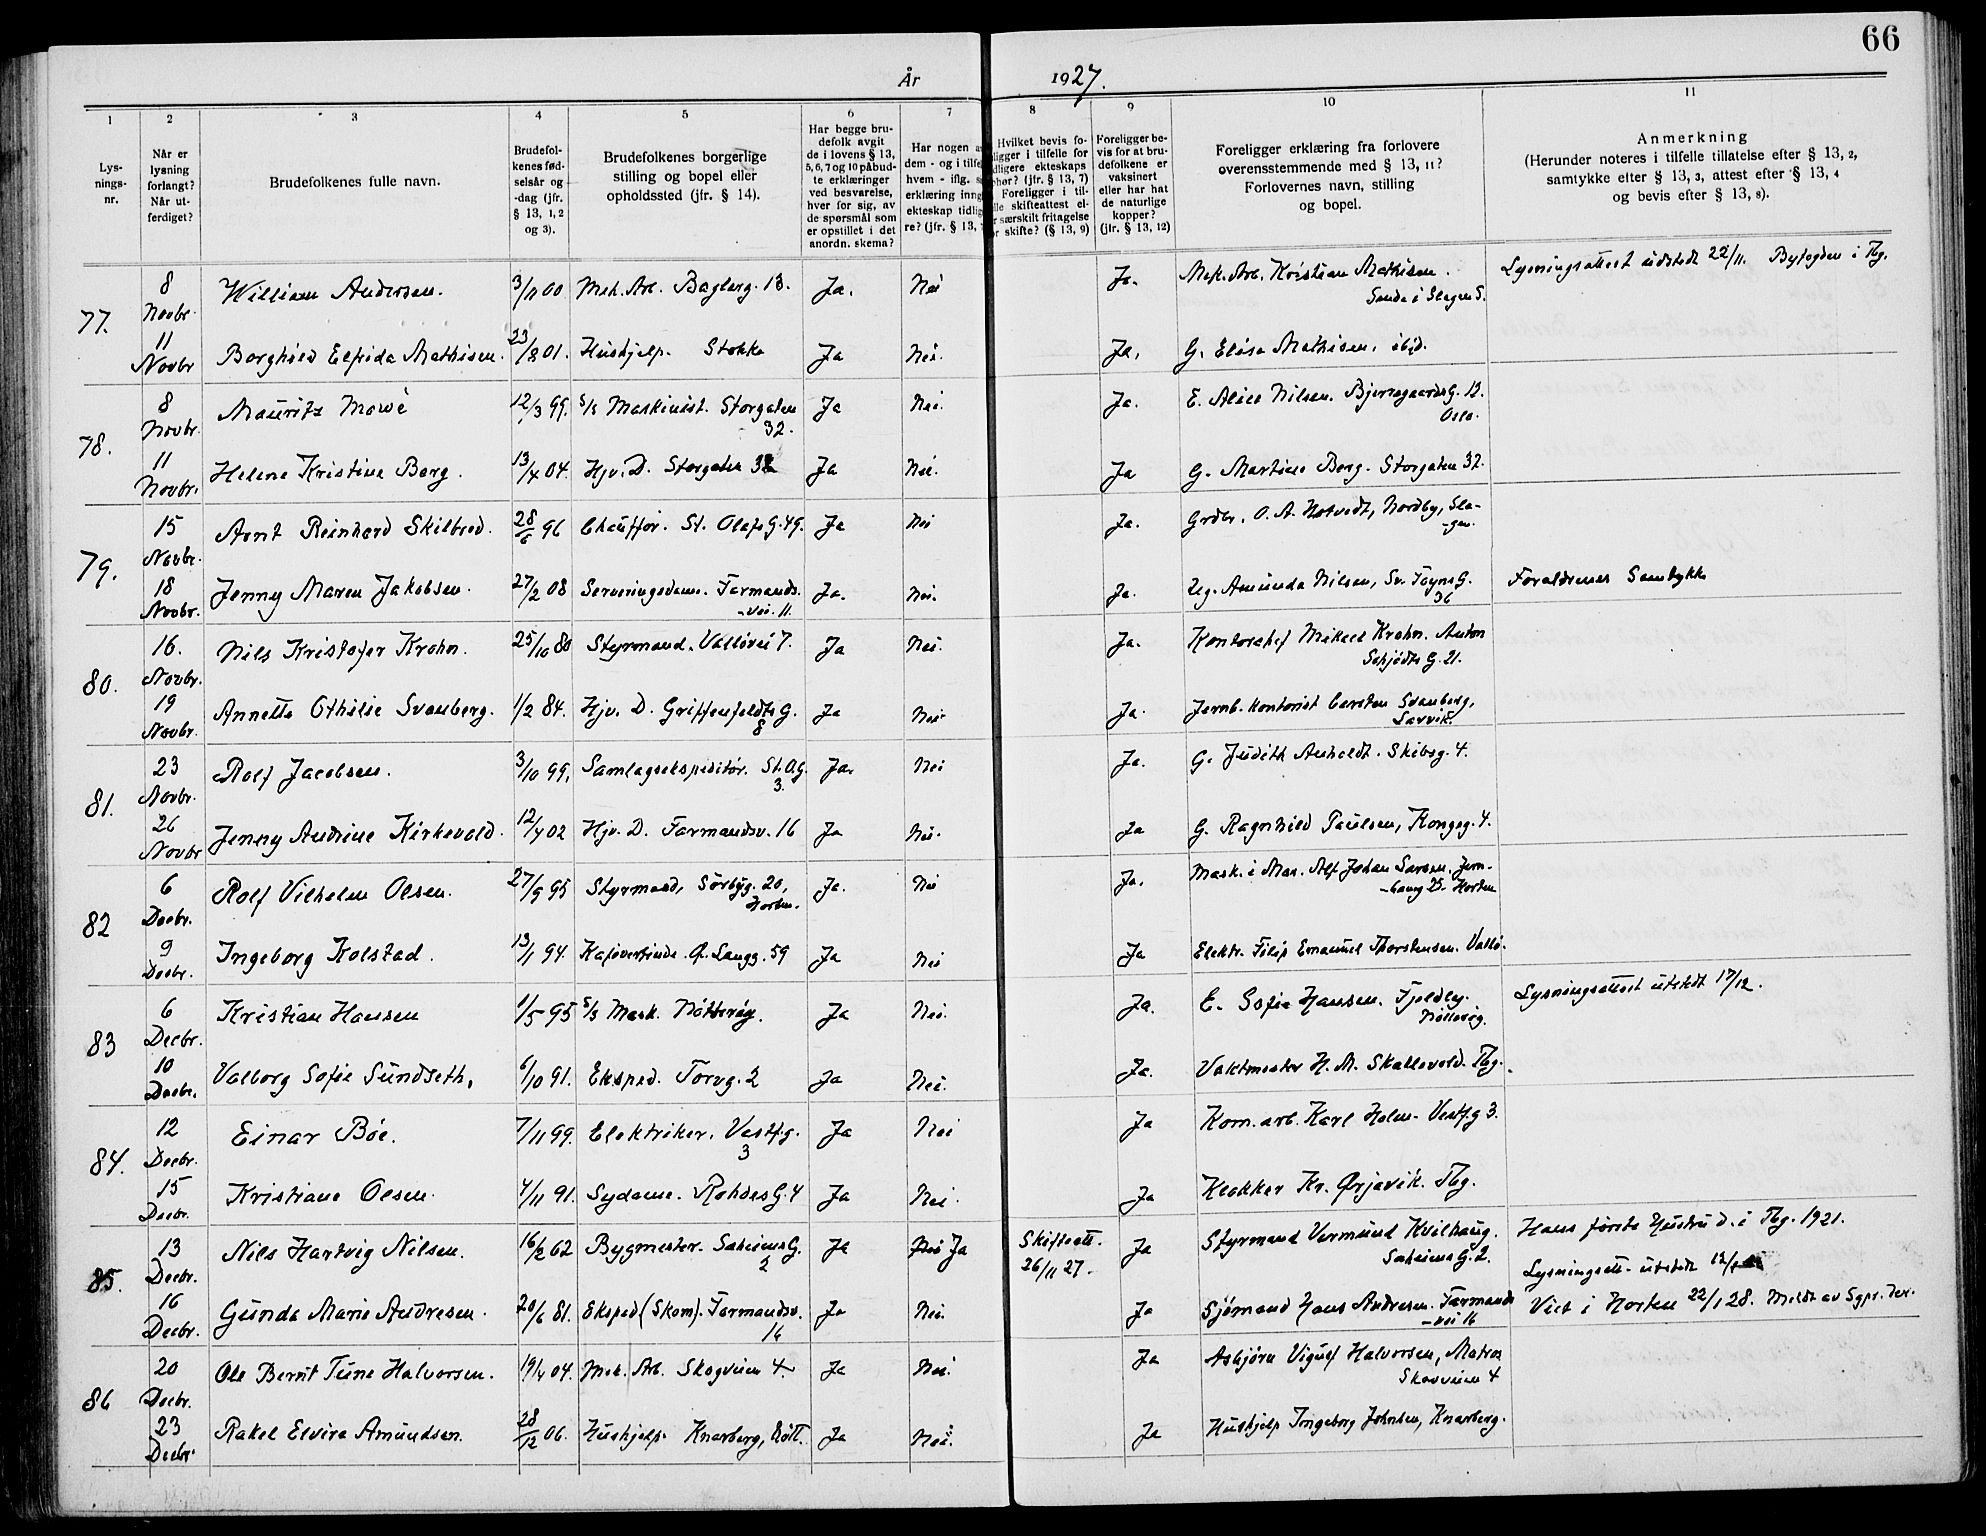 66
År 1927.
1 2 3 4 5 6 7 8 9 10 11
Lys-
nings-
nr.
Når er
lysning
forlangt?
Når ut-
ferdiget?
Brudefolkenes fulle navn.
Brudefol-
kenes fød-
selsår og
-dag (jfr.
§ 13, 1, 2
og 3).
Brudefolkenes borgerlige
stilling og bopel eller
opholdssted (jfr. § 14).
Har begge bru-
defolk avgit
de i lovens § 13,
5, 6, 7 og 10 påbud-
te erklæringer
ved besvarelse,
hver for sig, av
de spørsmål som
er opstillet i det
anordn. skema?
Har nogen a
dem - og i tilfe
hvem - iflg.
erklæring inng
ekteskap tidlig
re? (jfr. § 13,
Hvilket bevis fo-
ligger i tilfelle for
dligere ekteskaps
phør? (jfr. § 13, 7)
Foreligger i til-
lle skifteattest el-
r særskilt fritagelse
or skifte? (§ 13, 9)
Foreligger be-
vis for at bru-
defolkene er
vaksinert
eller har hat
de naturlige
kopper?
(jfr. § 13, 12)
Foreligger erklæring fra forlovere
overensstemmende med § 13, 11?
Forlovernes navn, stilling
og bopel.
Anmerkning
(Herunder noteres i tilfelle tillatelse efter § 13, 2,
samtykke efter § 13, 3, attest efter § 13, 4
og bevis efter § 13, 8).
77.
8 Novbr. William Andersen. 3/11 00 Mek. Arb. Baglerg. 13. Ja. Nei Ja. Mek. Arb. Kristian Mathisen.
Sande i Slagen S.
Lysningsattest utstedt 22/11. Byfogden i Tbg.
11 Novbr Borghild Elfrida Mathisen. 23/8 01. Hushjelp. Stokke Ja Nei. Ja. G. Elise Mathisen, ibid.
78.
8 Novbr. Mauritz Mowé 12/3 99. S/S Maskinist. Storgaten
32.
Ja Nei. Ja. E. Alice Nilsen. Bjerregaardsg. 12.
Oslo.
11 Novbr. Helene Kristine Berg. 13/4 04. Hjv. D. Storgaten 32 Ja Nei. Ja G. Martine Berg. Storgaten 32.
79.
15 Novbr. Arnt Reinhard Skilbred. 28/6 96 Chauffør. St. Olafs G. 49. Ja Nei Ja. Grdbr. O. A. Hotvedt, Nordby, Sla-
-gen.
18 Novbr. Jenny Maren Jakobsen. 27/2 08 Serveringsdame. Farmands-
-vei. 11.
Ja. Nei. Ja. Ug. Amunda Nilsen, Sv. Foyns G.
36
Forældrenes Samtykke
80.
16. Novbr. Nils Kristofer Krohn. 25/10 80 Styrmand. Valløvei 7. Ja Nei. Ja. Kontorchef Mikael Krohn. Anton
Schjødts G. 21.
19 Novbr. Annette Othilie Svanberg. 1/2 84. Hjv. D. Griffenfeldts G.
8
Ja Nei. Ja. Jernb. kontorist Carsten Svanberg,
Larvik.
81.
23 Novbr. Rolf Jacobsen. 3/10 99, Samlagsekspeditør. St. O. G.
3.
Ja. Nei Ja. G. Judith Anholdt. Skibsg. 4.
26 Novbr Jenny Andrine Kirkevold. 12/4 02 Hjv. D. Farmandsv. 16 Ja Nei. Ja G. Ragnhild Paulsen, Kongsg. 4.
82
6 Decbr. Rolf Vilhelm Olsen. 27/9 95 Styrmand, Sørbyg. 20,
Horten.
Ja. Nei Ja. Mask. i Mar. Alf Johan Larsen. Jern-
-baneg 25. Horten
9 Decbr. Ingeborg Kolstad. 13/1 94. Kafévertinde. Ø. Langg. 59 Ja Nei Ja Elektr. Filip Emanuel Thorstensen. Vallø.
83
6 Decbr. Kristian Hansen 1/5 95 S/S Mask. Nøtterøy. Ja Nei. Ja. E. Sofie Hansen. Fjeldly.
Nøtterøy.
Lysningsattest utstedt 17/12.
10 Decbr. Valborg Sofie Sundseth. 6/10 91. Eksped. Torvg. 2 Ja Nei. Ja. Vaktmester H. M. Skallevold. Tbg.
84.
12 Decbr. Einar Bøe. 7/11 99. Elektriker. Vestfg.
3
Ja Nei Ja Kom. arb. Karl Holm. Vestf.g 3.
15 Decbr. Kristiane Olsen. 4/11 91. Sydame. Rohdes G. 4 Ja Nei. Ja Klokker Kr. Ørjavik. Tbg.
85.
13 Decbr. Nils Hartvig Nilsen. 16/2 62 Bygmester. Saheims G.
2
Ja Nei Ja Skifteatt.
26/11 27.
Ja Styrmand Vermund Kvilhaug.
Saheims G. 2.
Hans første Hustru d. i Tbg. 1921.
Lysningsatt. utstedt
16 Decbr. Gunda Marie Andresen. 20/6 81. Eksped (Skom). Farmandsv.
16
Ja Nei. Ja Sjømand Hans Andresen. Farmands
-vei 16
Viet i Horten 22/1 28. Meldt av Sgpr. der.
86
20 Decbr. Ole Bernt Tune Halvorsen. 19/4 04. Mek. Arb. Skogveien 4 Ja Nei. Ja Asbjørn Viggo Halvorsen, Matros
Skogveien 4
23 Decbr. Rakel Elvira Amundsen. 28/12 06. Hushjelp. Knarberg, Nøtt. Ja Nei. Ja Hushjelp Ingeborg Johnsen, Knarberg.